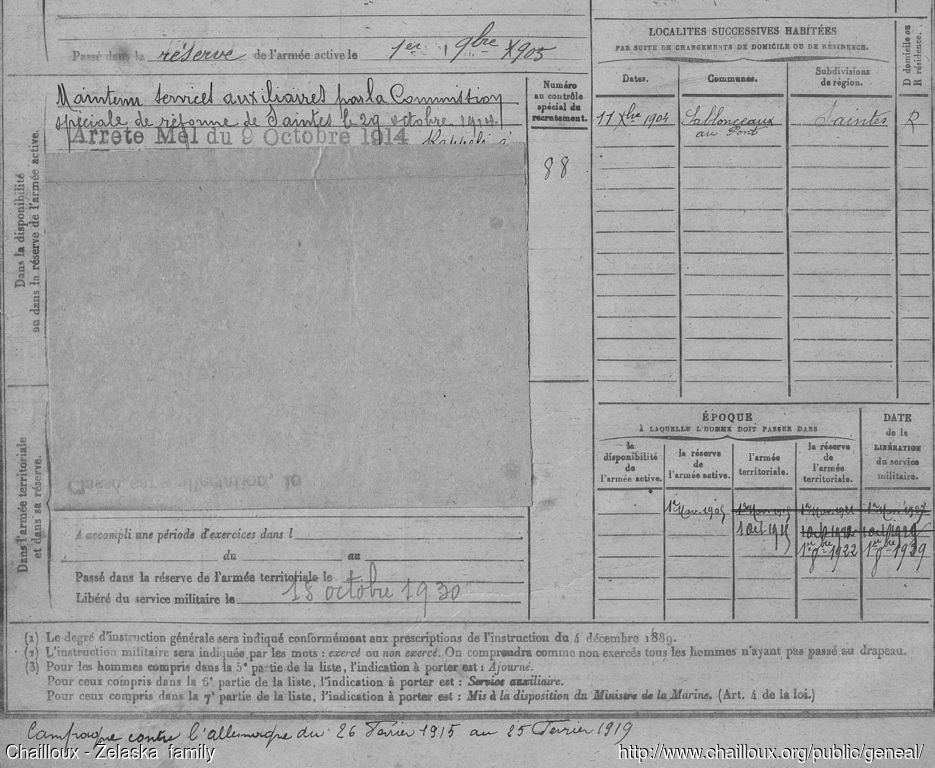 Passé dans la réserve de l'armée active le 1er 9bre 1905
Dans la disponibilité
ou dans la réserve de l'armée active.
Maintenu services auxiliaires par la Commission
spéciale de réforme de Saintes le 29 octobre 1914.
Arrêté Mel du 9 Octobre 1914 Rappelé à
Numéro
au contrôle
spécial du
recrutement.
88
LOCALITES SUCCESSIVES HABITÉES
PAR SUITE DE CHANGEMENTS DE DOMICILE OU DE RÉSIDENCE.
D domicile ou
R résidence.
Dates. Communes. Subdivisions
de région.
11 Xbre 1904 Sablonceaux Saintes R
au Pont
Dans l'armée territoriale
et dans sa réserve.
A accompli une période d'exercices dans l
du au
Passé dans la réserve de l'armée territoriale le
Libéré du service militaire le 15 octobre 1930
ÉPOQUE
À LAQUELLE L'HOMME DOIT PASSER DANS
DATE
de la
LIBÉRATION
du service
militaire.
la
disponibilité
de
l'armée active.
la réserve
de
l'armée active.
l'armée
territoriale.
la réserve
de
l'armée
territoriale.
1er Nov. 1905
1 Oct 1915
1er 9bre 1922 1er 9bre 1929
(1) Le degré d'instruction générale sera indiqué conformément aux prescriptions de l'instruction du 4 décembre 1889.
(2) L'instruction militaire sera indiquée par les mots : exercé ou non exercé. On comprendra comme non exercés tous les hommes n'ayant pas passé au drapeau.
(3) Pour les hommes compris dans la 5e partie de la liste, l'indication à porter est : Ajourné.
Pour ceux compris dans la 6e partie de la liste, l'indication à porter est : Service auxiliaire.
Pour ceux compris dans la 7e partie de la liste, l'indication à porter est : Mis à la disposition du Ministre de la Marine. (Art. 4 de la loi.)
Campagne contre l'allemagne du 26 Fevrier 1915 au 25 Fevrier 1919
Chailloux - Żelaska family http://www.chailloux.org/public/geneal/